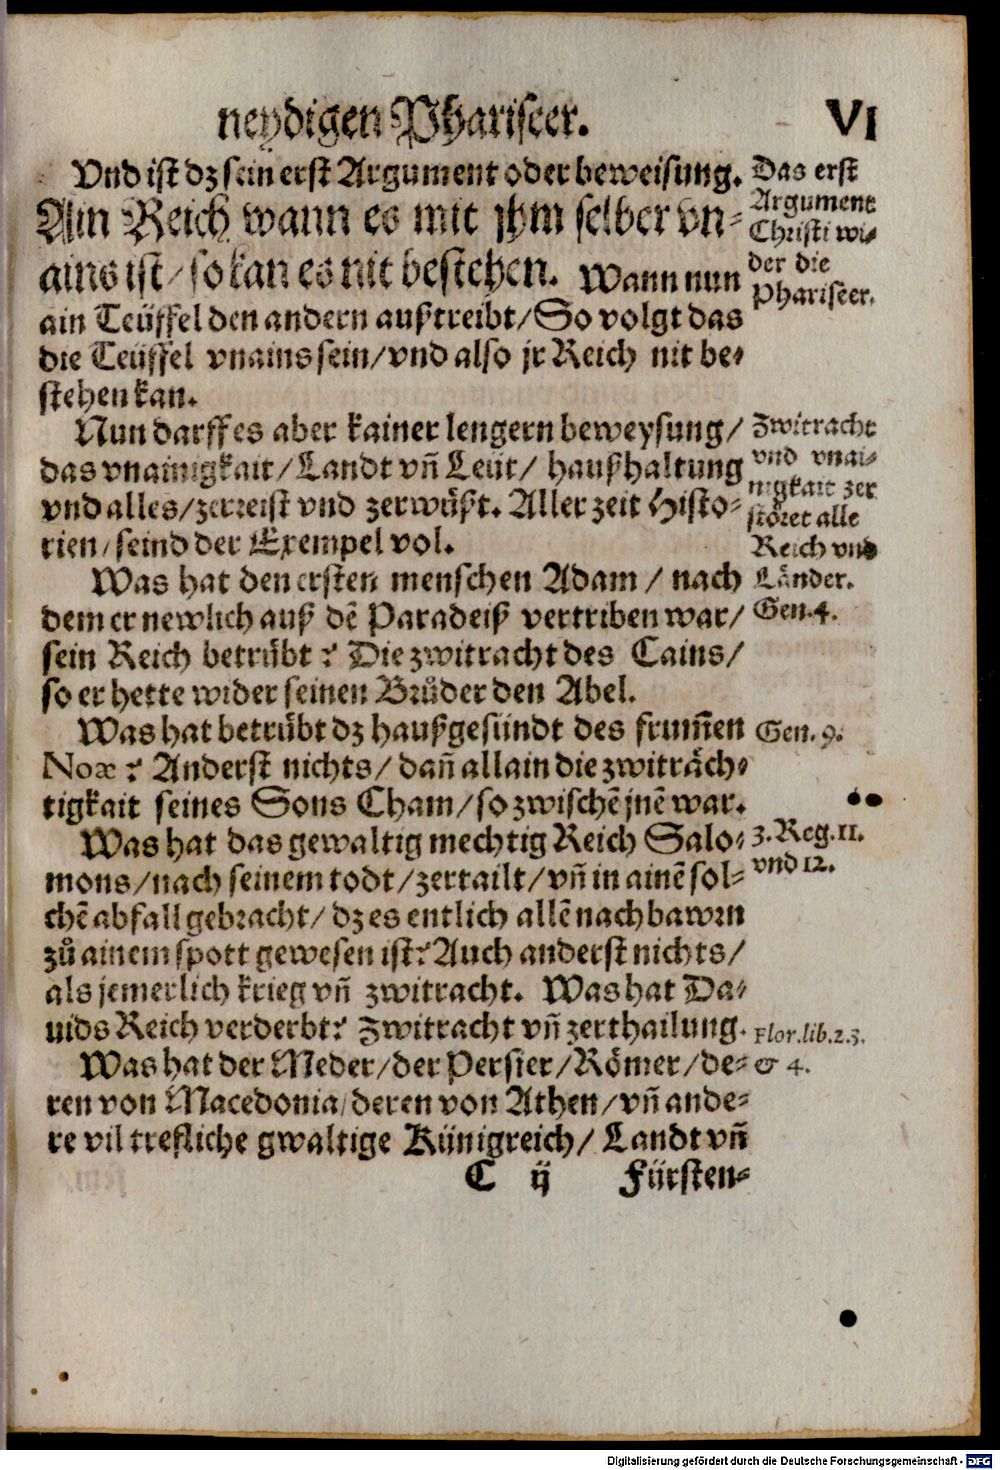 neydigen Phariseer. VI
Vnd ist dz sein erst Argument oder beweisung.
Ain Reich wann es mit jhm selber vn-
ains ist / so kan es nit bestehen. Wann nun
ain Teüffel den andern außtreibt / So volgt das
die Teüffel vnains sein / vnd also jr Reich nit be-
stehen kan.
Das erst
Argument
Christi wi-
der die
Phariseer.
Nun darff es aber kainer lengern beweysung /
das vnainigkait / Landt vñ Leüt / haußhaltung
vnd alles / zerreist vnd zerwüßt. Aller zeit Histo-
rien / seind der Exempel vol.
Zwitracht
vnd vnai-
nigkait zer
störet alle
Reich vnd
Länder.
Gen. 4.
Was hat den ersten menschen Adam / nach
dem er newlich auß dẽ Paradeiß vertriben war /
sein Reich betrübt? Die zwitracht des Cains /
so er hette wider seinen Brůder den Abel.
Was hat betrübt dz haußgesündt des frum̃en
Noæ? Anderst nichts / dañ allain die zwiträch-
tigkait seines Sons Cham / so zwischẽ jnẽ war.
Gen. 9.
Was hat das gewaltig mechtig Reich Salo-
mons / nach seinem todt / zertailt / vñ in ainẽ sol-
chẽ abfall gebracht / dz es entlich allẽ nachbawrn
zů ainem spott gewesen ist? Auch anderst nichts /
als jemerlich krieg vñ zwitracht. Was hat Da-
uids Reich verderbt? Zwitracht vñ zerthailung.
3. Reg. 11.
vnd 12.
Was hat der Meder / der Persier / Römer / de-
ren von Macedonia / deren von Athen / vñ ande-
re vil trefliche gwaltige Künigreich / Landt vñ
Flor. lib. 2. 3.
& 4.
C ij Fürsten-
Digitalisierung gefördert durch die Deutsche Forschungsgemeinschaft - DFG